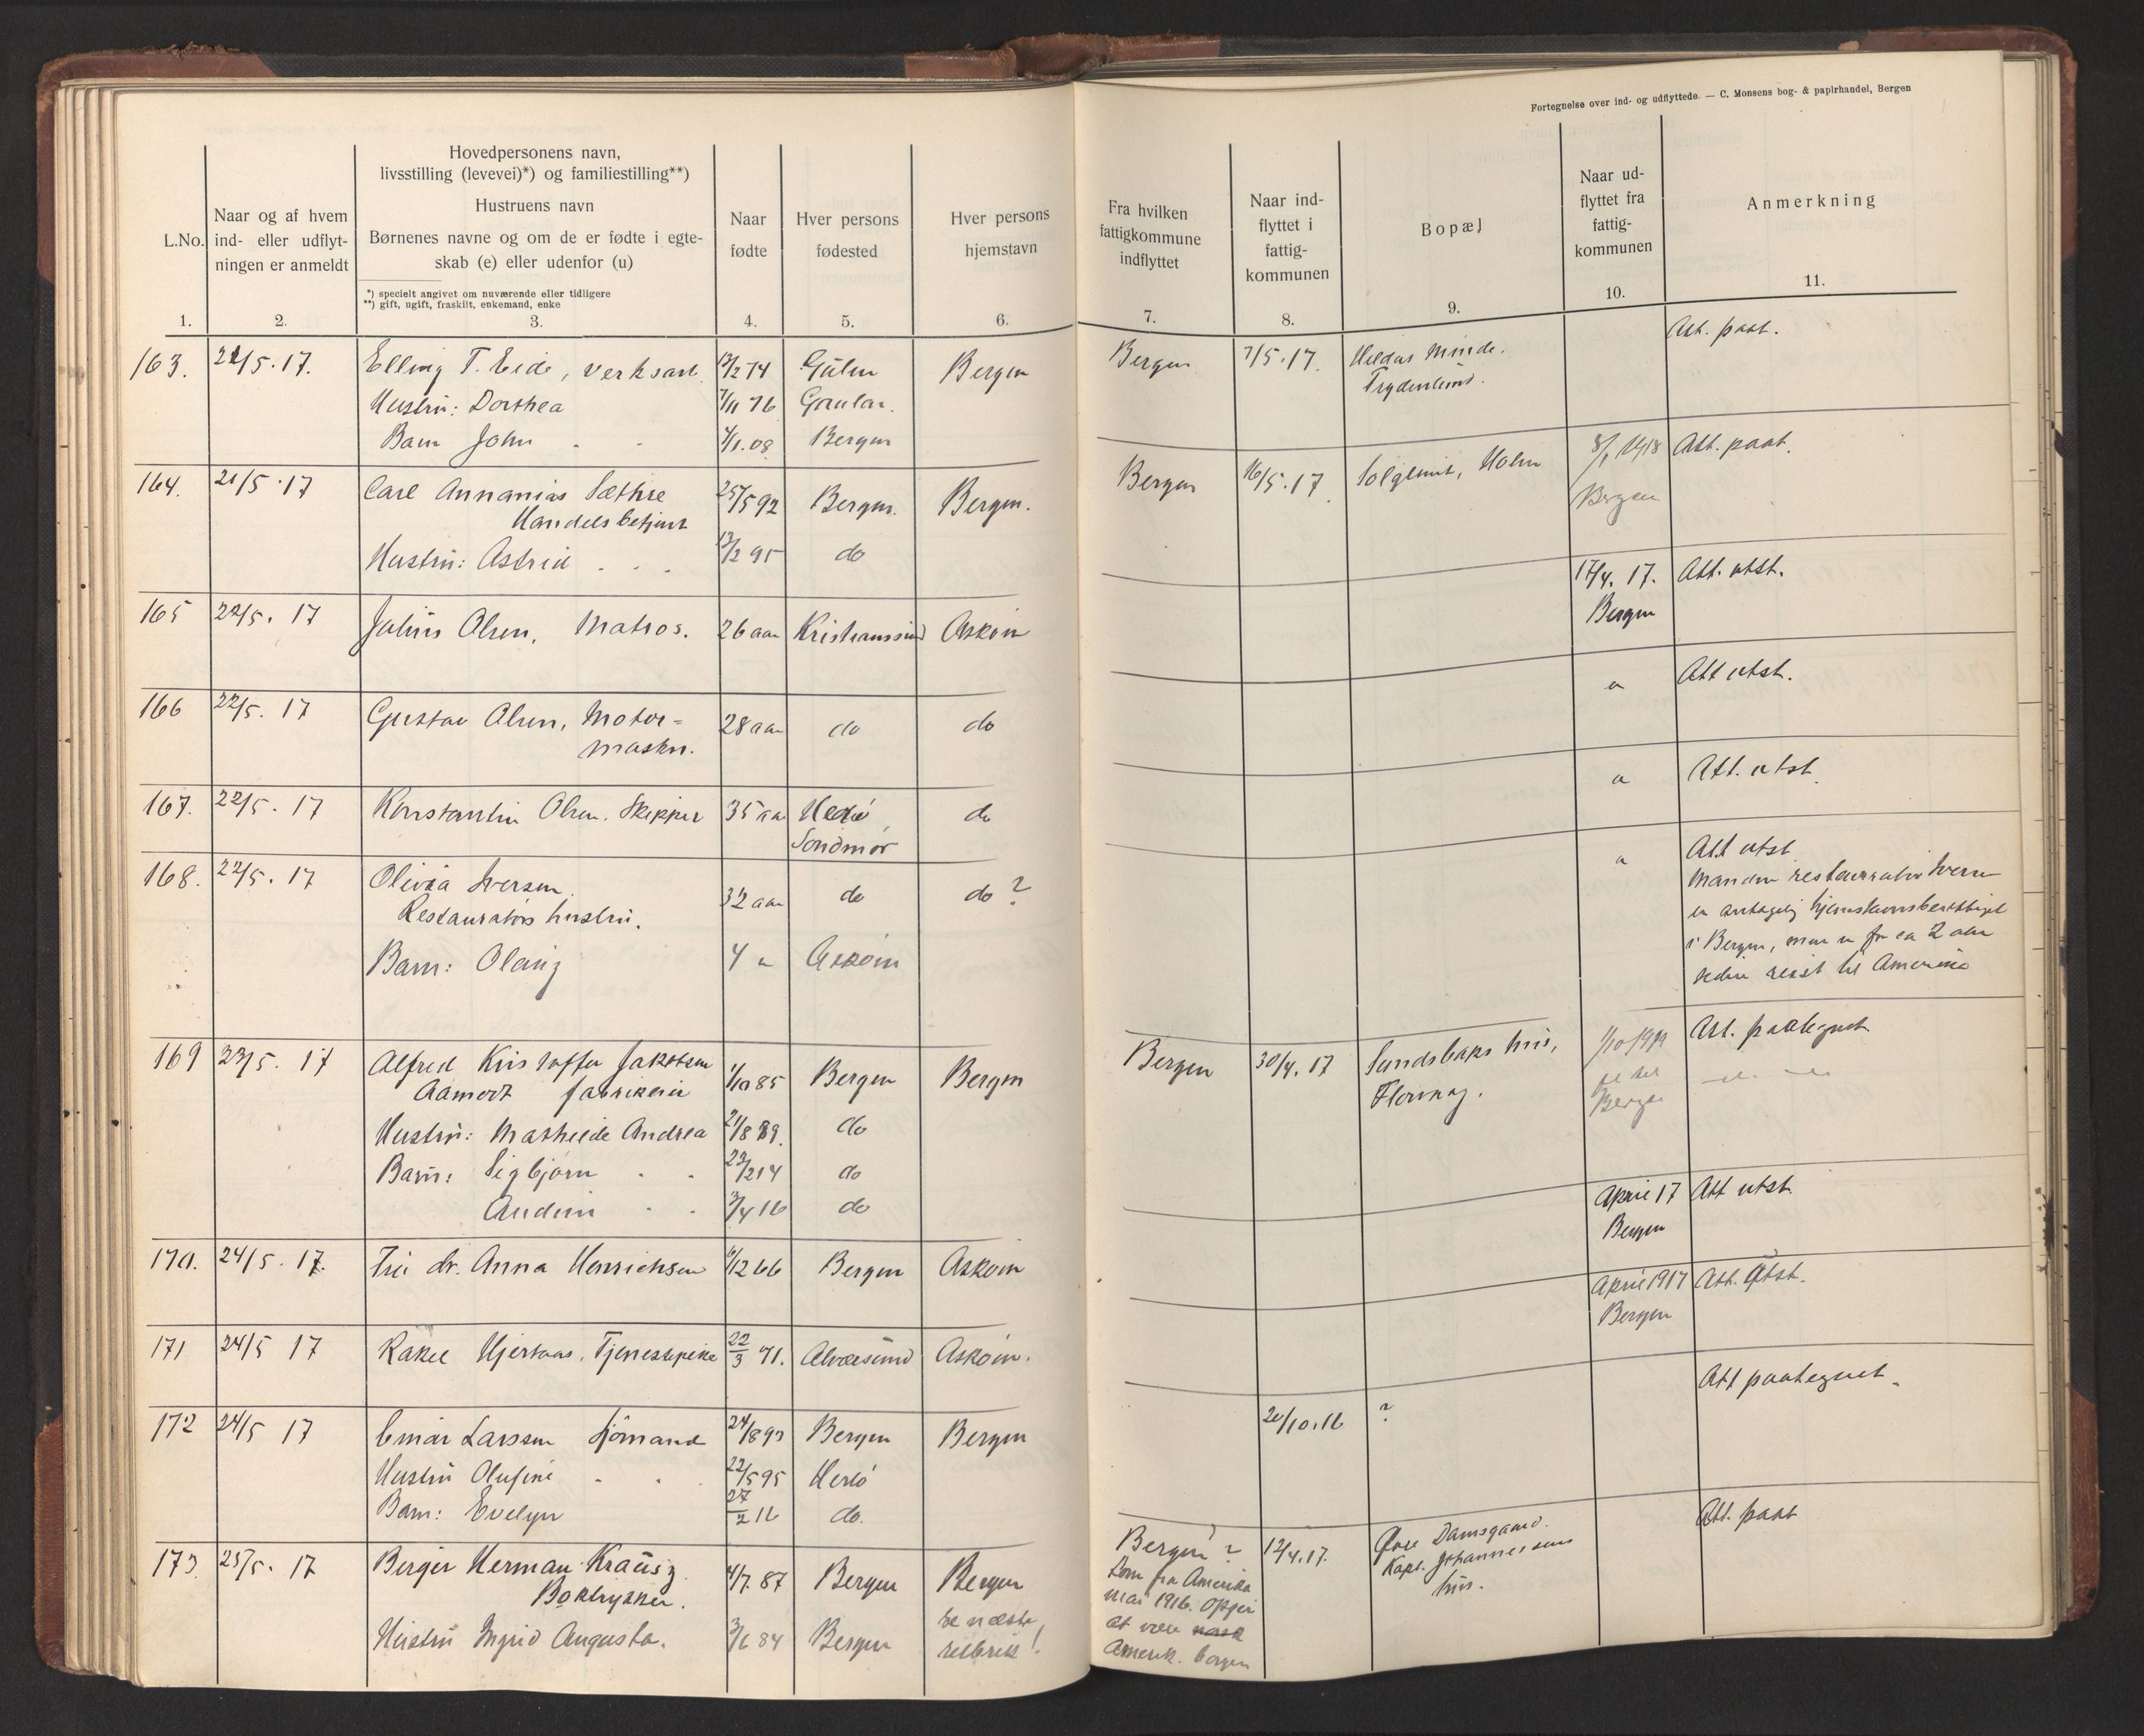 Fortegnelse over ind- og udflyttede. — C. Monsens bog- & papirhandel, Bergen
L.No.
1.
Naar og af hvem
ind- eller udflyt-
ningen er anmeldt
2.
Hovedpersonens navn,
livsstilling (levevei)*) og familiestilling**)
Hustruens navn
Børnenes navne og om de er fødte i egte-
skab (e) eller udenfor (u)
*) specielt angivet om nuværende eller tidligere
**) gift, ugift, fraskilt, enkemand, enke
3.
Naar
fødte
4.
Hver persons
fødested
5.
Hver persons
hjemstavn
6.
Fra hvilken
fattigkommune
indflyttet
7.
Naar ind-
flyttet i
fattig-
kommunen
8.
Bopæl
9.
Naar ud-
flyttet fra
fattig-
kommunen
10.
Anmerkning
11.
163. 21/5.17. Elling T. Eide, verksarb. 12/2 74 Gulen Bergen Bergen 7/5.17. Hildas Minde. Att. paat.
Frydenlund.
Hustru: Dorthea 7/11 76 Gaular.
Barn John 4/1.08 Bergen
164. 21/5.17 Carl Annanias Sæthre 25/5 92 Bergen. Bergen. Bergen 16/5.17. Solglimt, Holm 8/1 1918 Att. paat.
Handelsbetjent Bergen
Hustru: Astrid 13/2 95 do
165 22/5.17 Julius Olsen, Matros. 26 aar Kristianssund Askøin 17/4.17. Att. utst.
Bergen
166 22/5.17 Gustav Olsen, Motor= 28 aar do do " Att utst.
maskn.
167. 22/5.17 Konstantin Olsen. Skipper 35 aar do " Att. utst.
Søndmør
168. 22/5.17 Olivia Iversen 32 aar do do? " Att utst.
Restauratørs hustru. Manden restauratør Iversen
er antagelig hjemstavnsberettiget
i Bergen, men er for ca 2 aar
siden reist til Amerika
Barn: Olaug 4 " Askøin
169 23/5.17 Alfred Kristoffer Jakobsen 1/10 85 Bergen Bergen Bergen 30/4.17 Sundsbaks hus, 1/10 1919 Att. paategnet
Aamodt fabrikeier Florvaag. Bergen
Hustru: Mathilde Andrea 21/8 89. do
Barn: Sigbjørn 23/2 14 do
Audun 3/4 16 do
170. 24/5.17. Fru dr. Anna Henrichsen 6/12 66 Bergen Askøin April 17 Att utst.
Bergen
171 24/5 17 Rakel Hjertaas, Tjenestepike 22/3 91. Alvøesund Askøin. April 1917 Att. utst.
Bergen
172 24/5 17 Einar Larssen Sjømand 24/8 93 Bergen Bergen 20/10.16 ? Att paategnet.
Hustru Olufine 22/5 95 Herlø
Barn: Evelyn 27/2 16 do.
173. 25/5.17 Berger Herman Krausz 4/7.87 Bergen Bergen Bergen? 12/4.17. Øvre Damsgaard. Att. paat
Boktrykker. Kom fra Amerika Kapt. Johannessens
mai 1916. Opgir hus.
se næste
Hustru Ingrid Augusta. 3/6 84 Bergen rubrik! at være norsk
Amerik. borger